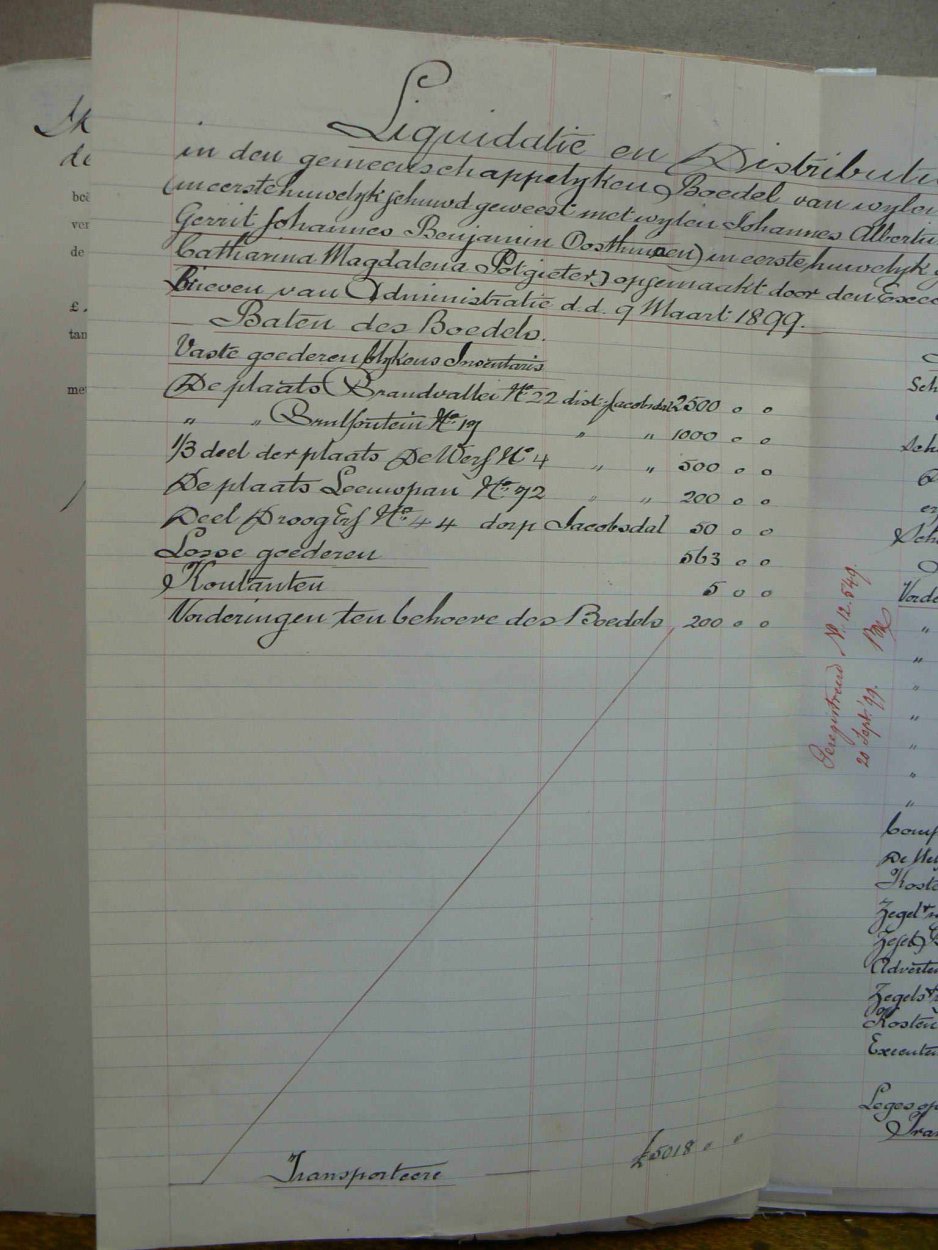 Liquidatie en Distributi
in den gemeenschappelyken Boedel van wylen
(in eerste huwelyk gehuwd geweest met wylen Johannes Albertu
Gerrit Johannes Benjamin Oosthuizen) in eerste huwelyk g
Catharina Magdalena Potgieter) opgemaakt door den Exec
Brieven van Administratie d.d. 9 Maart 1899.
Baten des Boedels.
Vaste goederen blykens Inventaris
De plaats Brandvallei No. 22 dist. Jacobsdal 2500 0 0
" " Brulfontein No. 17 " " 1000 0 0
1/3 deel der plaats De Werf No. 4 " " 500 0 0
De plaats Leeuwpan No. 72 " " 200 0 0
Deel Droog Erf No. 44 dorp Jacobsdal 50 0 0
Losse goederen 563 0 0
Kontanten 5 0 0
Vorderingen ten behoeve des Boedels 200 0 0
Transporteere £5018 " "
Geregistreerd No. 12.549.
20 Sept. '99.
bcë
ver
de
£.
tan
me
Sch
Sch
Sch
Vorde
"
"
"
"
"
"
"
De
Koste
Zegel
Adverten
Zegels
Kosten
Executeu
Leges op
Tran